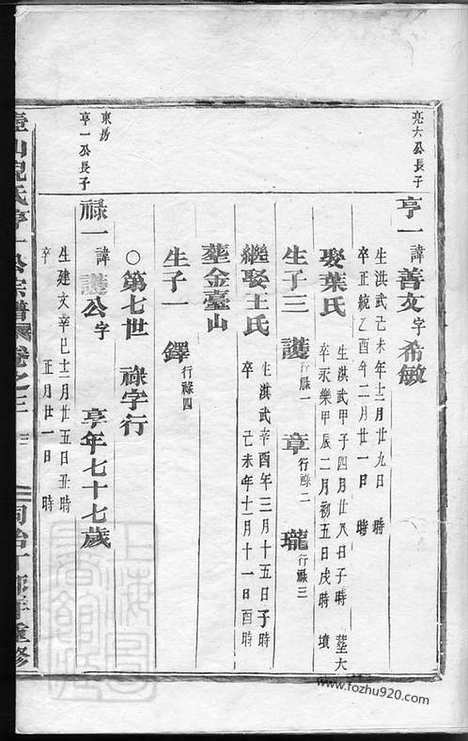 亮六公長子
亨一諱善文字希敏
生洪武己未年十二月廿九日 時
卒正統乙酉年二月廿一日 時
娶葉氏
生洪武甲子四月廿八日子時 塟大
卒永樂甲辰二月初五日戌時 墳
生子三 護行祿一 章行祿二 瓏行祿三
繼娶王氏
生洪武辛酉年三月十五日子時
卒 己未年十二月十一日酉時
塟金臺山
生子一 鐸行祿四
○第七世 祿字行
東房
亨一公長子
祿一諱護公字 享年七十七歲
生建文辛巳十二月廿五日丑時
卒 正月廿一日 時
壼山倪氏亨一公宗譜 卷之三 三 同治十 年重修
www.fozhu920.com